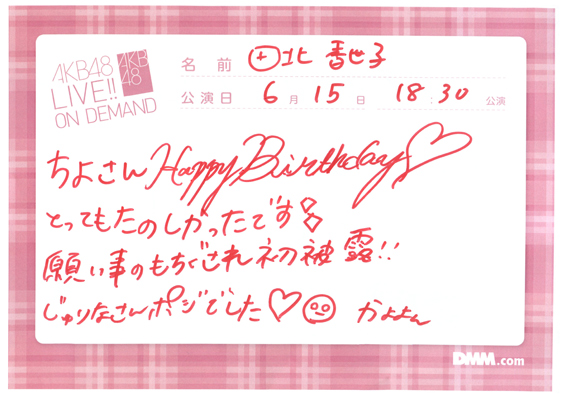 AKB48
LIVE!!
ON DEMAND
AKB
48
名前 田北 香世子
公演日 6月15日 18:30 公演
ちよさん Happy Birthday♡
とってもたのしかったです!
願い事のもちぐされ初被露!!
じゅりなさんポジでした♡ かよよん
DMM.com